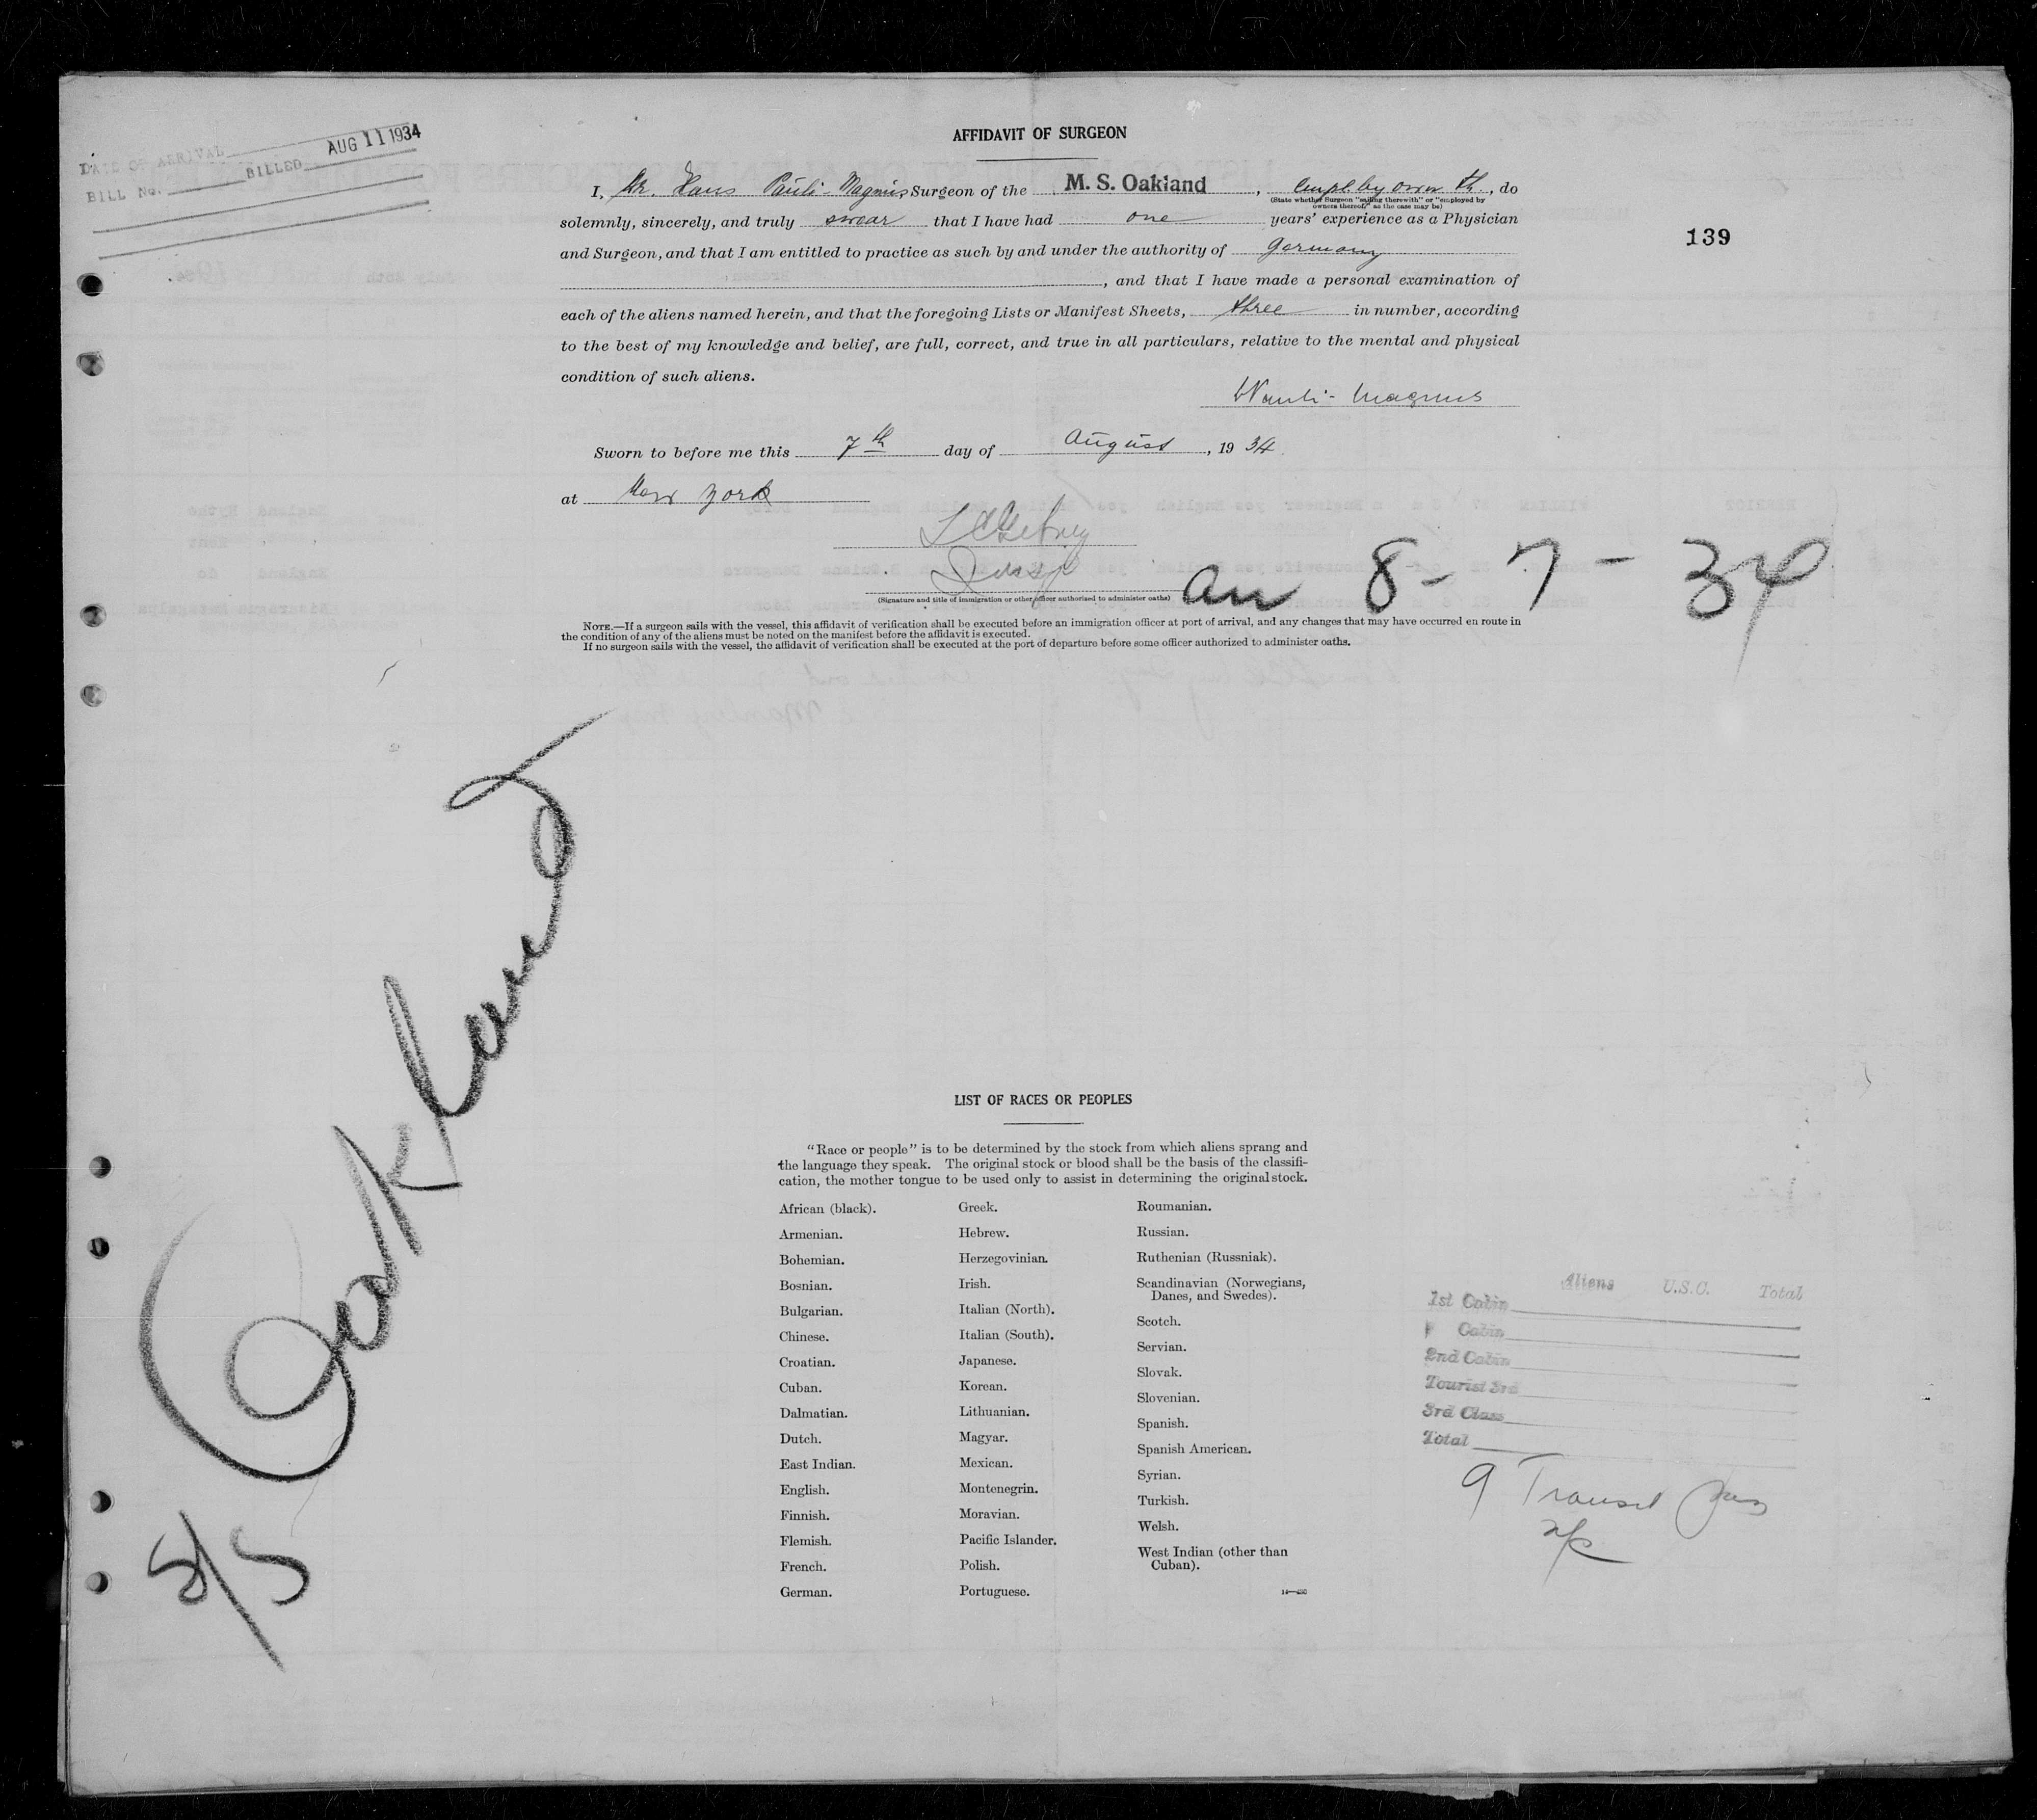 DATE OF ARRIVAL
BILL No. BILLED AUG 11 1934
AFFIDAVIT OF SURGEON
I, Dr. Hans Pauli-Magnus, Surgeon of the M. S. Oakland, empl. by own. th., do
(State whether Surgeon "sailing therewith" or "employed by
owners thereof," as the case may be)
solemnly, sincerely, and truly swear that I have had one years' experience as a Physician
139
and Surgeon, and that I am entitled to practice as such by and under the authority of Germany
, and that I have made a personal examination of
each of the aliens named herein, and that the foregoing Lists or Manifest Sheets, three in number, according
to the best of my knowledge and belief, are full, correct, and true in all particulars, relative to the mental and physical
condition of such aliens.
Pauli-Magnus
Sworn to before me this 7th day of August, 1934.
at New York
Insp
(Signature and title of immigration or other officer authorized to administer oaths)
arr 8-7-34
NOTE.—If a surgeon sails with the vessel, this affidavit of verification shall be executed before an immigration officer at port of arrival, and any changes that may have occurred en route in
the condition of any of the aliens must be noted on the manifest before the affidavit is executed.
If no surgeon sails with the vessel, the affidavit of verification shall be executed at the port of departure before some officer authorized to administer oaths.
Oakland
8/5
LIST OF RACES OR PEOPLES
"Race or people" is to be determined by the stock from which aliens sprang and
the language they speak. The original stock or blood shall be the basis of the classifi-
cation, the mother tongue to be used only to assist in determining the original stock.
African (black).
Armenian.
Bohemian.
Bosnian.
Bulgarian.
Chinese.
Croatian.
Cuban.
Dalmatian.
Dutch.
East Indian.
English.
Finnish.
Flemish.
French.
German.
Greek.
Hebrew.
Herzegovinian.
Irish.
Italian (North).
Italian (South).
Japanese.
Korean.
Lithuanian.
Magyar.
Mexican.
Montenegrin.
Moravian.
Pacific Islander.
Polish.
Portuguese.
Roumanian.
Russian.
Ruthenian (Russniak).
Scandinavian (Norwegians,
Danes, and Swedes).
Scotch.
Servian.
Slovak.
Slovenian.
Spanish.
Spanish American.
Syrian.
Turkish.
Welsh.
West Indian (other than
Cuban).
Aliens U.S.C. Total
1st Cabin
Cabin
2nd Cabin
Tourist 3rd
3rd Class
Total
9 Transit